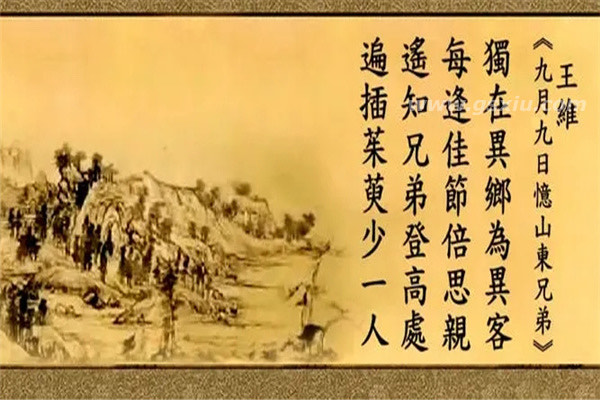 王維
《九月九日憶山東兄弟》
獨在異鄉為異客
每逢佳節倍思親
遙知兄弟登高處
遍插茱萸少一人